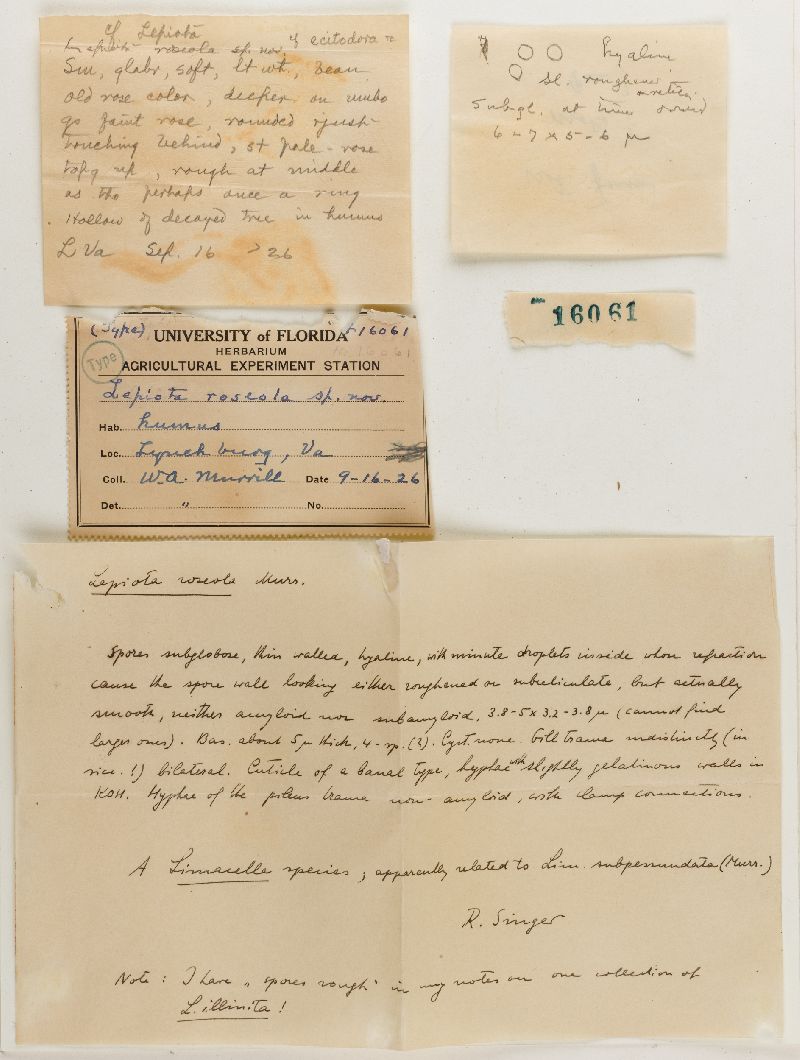 cf Lepiota
Lepiota roseola sp. nov. cf ecitodora
Sm, glabr, soft, lt wt, bean
old rose color, deeper on umbo
gs faint rose, rounded & just
touching behind, st pale-rose
tap'g up, rough at middle
as tho perhaps once a ring
Hollow of decayed tree in humus
L Va Sep. 16 '26
hyaline
sl. roughened
or retic.
Subgl. at times ovoid
6-7 x 5-6 μ
16061
(Type) F16061
UNIVERSITY of FLORIDA
HERBARIUM
Type
AGRICULTURAL EXPERIMENT STATION
Lepiota roseola sp. nov.
Hab. humus
Loc. Lynchburg, Va
Coll. W.A. Murrill Date 9-16-26
Det. " No.
Lepiota roseola Murr.
Spores subglobose, thin walled, hyaline, with minute droplets inside whose refraction
cause the spore wall looking either roughened or subreticulate, but actually
smooth, neither amyloid nor subamyloid, 3.8-5 x 3.2-3.8 μ (cannot find
larger ones). Bas. about 5 μ thick, 4-sp. (2). Cyst. none. Gill trama indistinctly (in
sicc. !) bilateral. Cuticle of a banal type, hyphae with slightly gelatinous walls in
KOH. Hyphae of the pileus trama non-amyloid, with clamp connections.
A Limacella species, apparently related to Lim. subpessundata (Murr.)
R. Singer
Note: I have "spores rough" in my notes on one collection of
L. illinita!